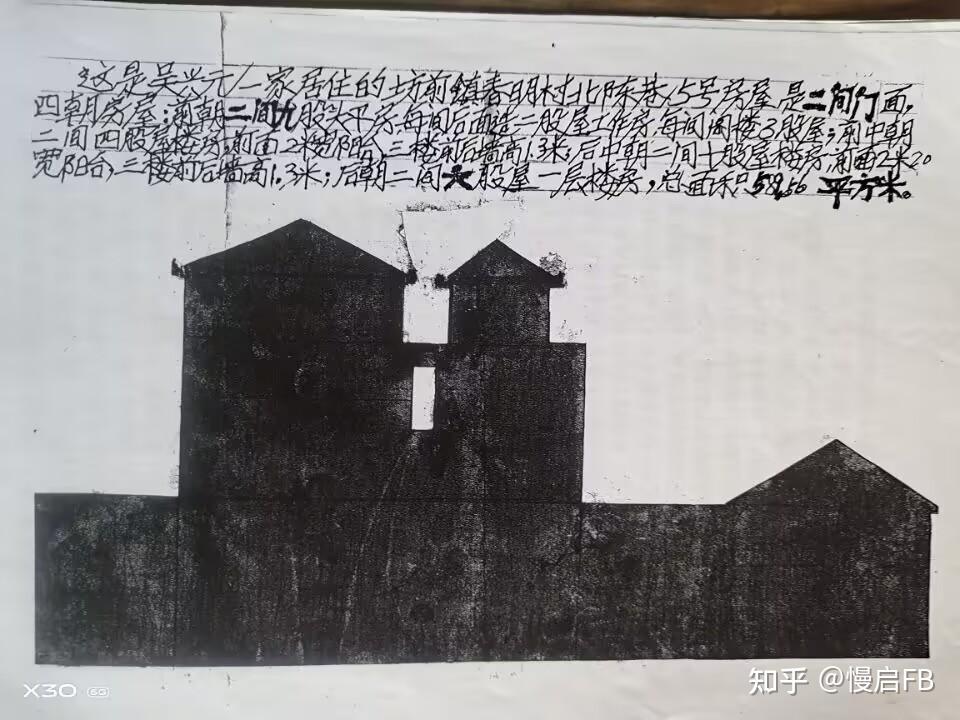 这是吴兴元一家居住的坊前镇春明村北陈巷15号房屋是二间门面,
四朝房屋:前朝二间九股头平房,每间后面造二股屋工作房,每间阁楼3股屋;前中朝
二间四股屋楼房,前面2米宽阳台,三楼前后墙高1.3米;后中朝二间十股屋楼房,前面2米20
宽阳台,三楼前后墙高1.3米;后朝二间 股屋一层楼房,总面积 58,50 平方米。
X30 5G
知乎 @慢启FB